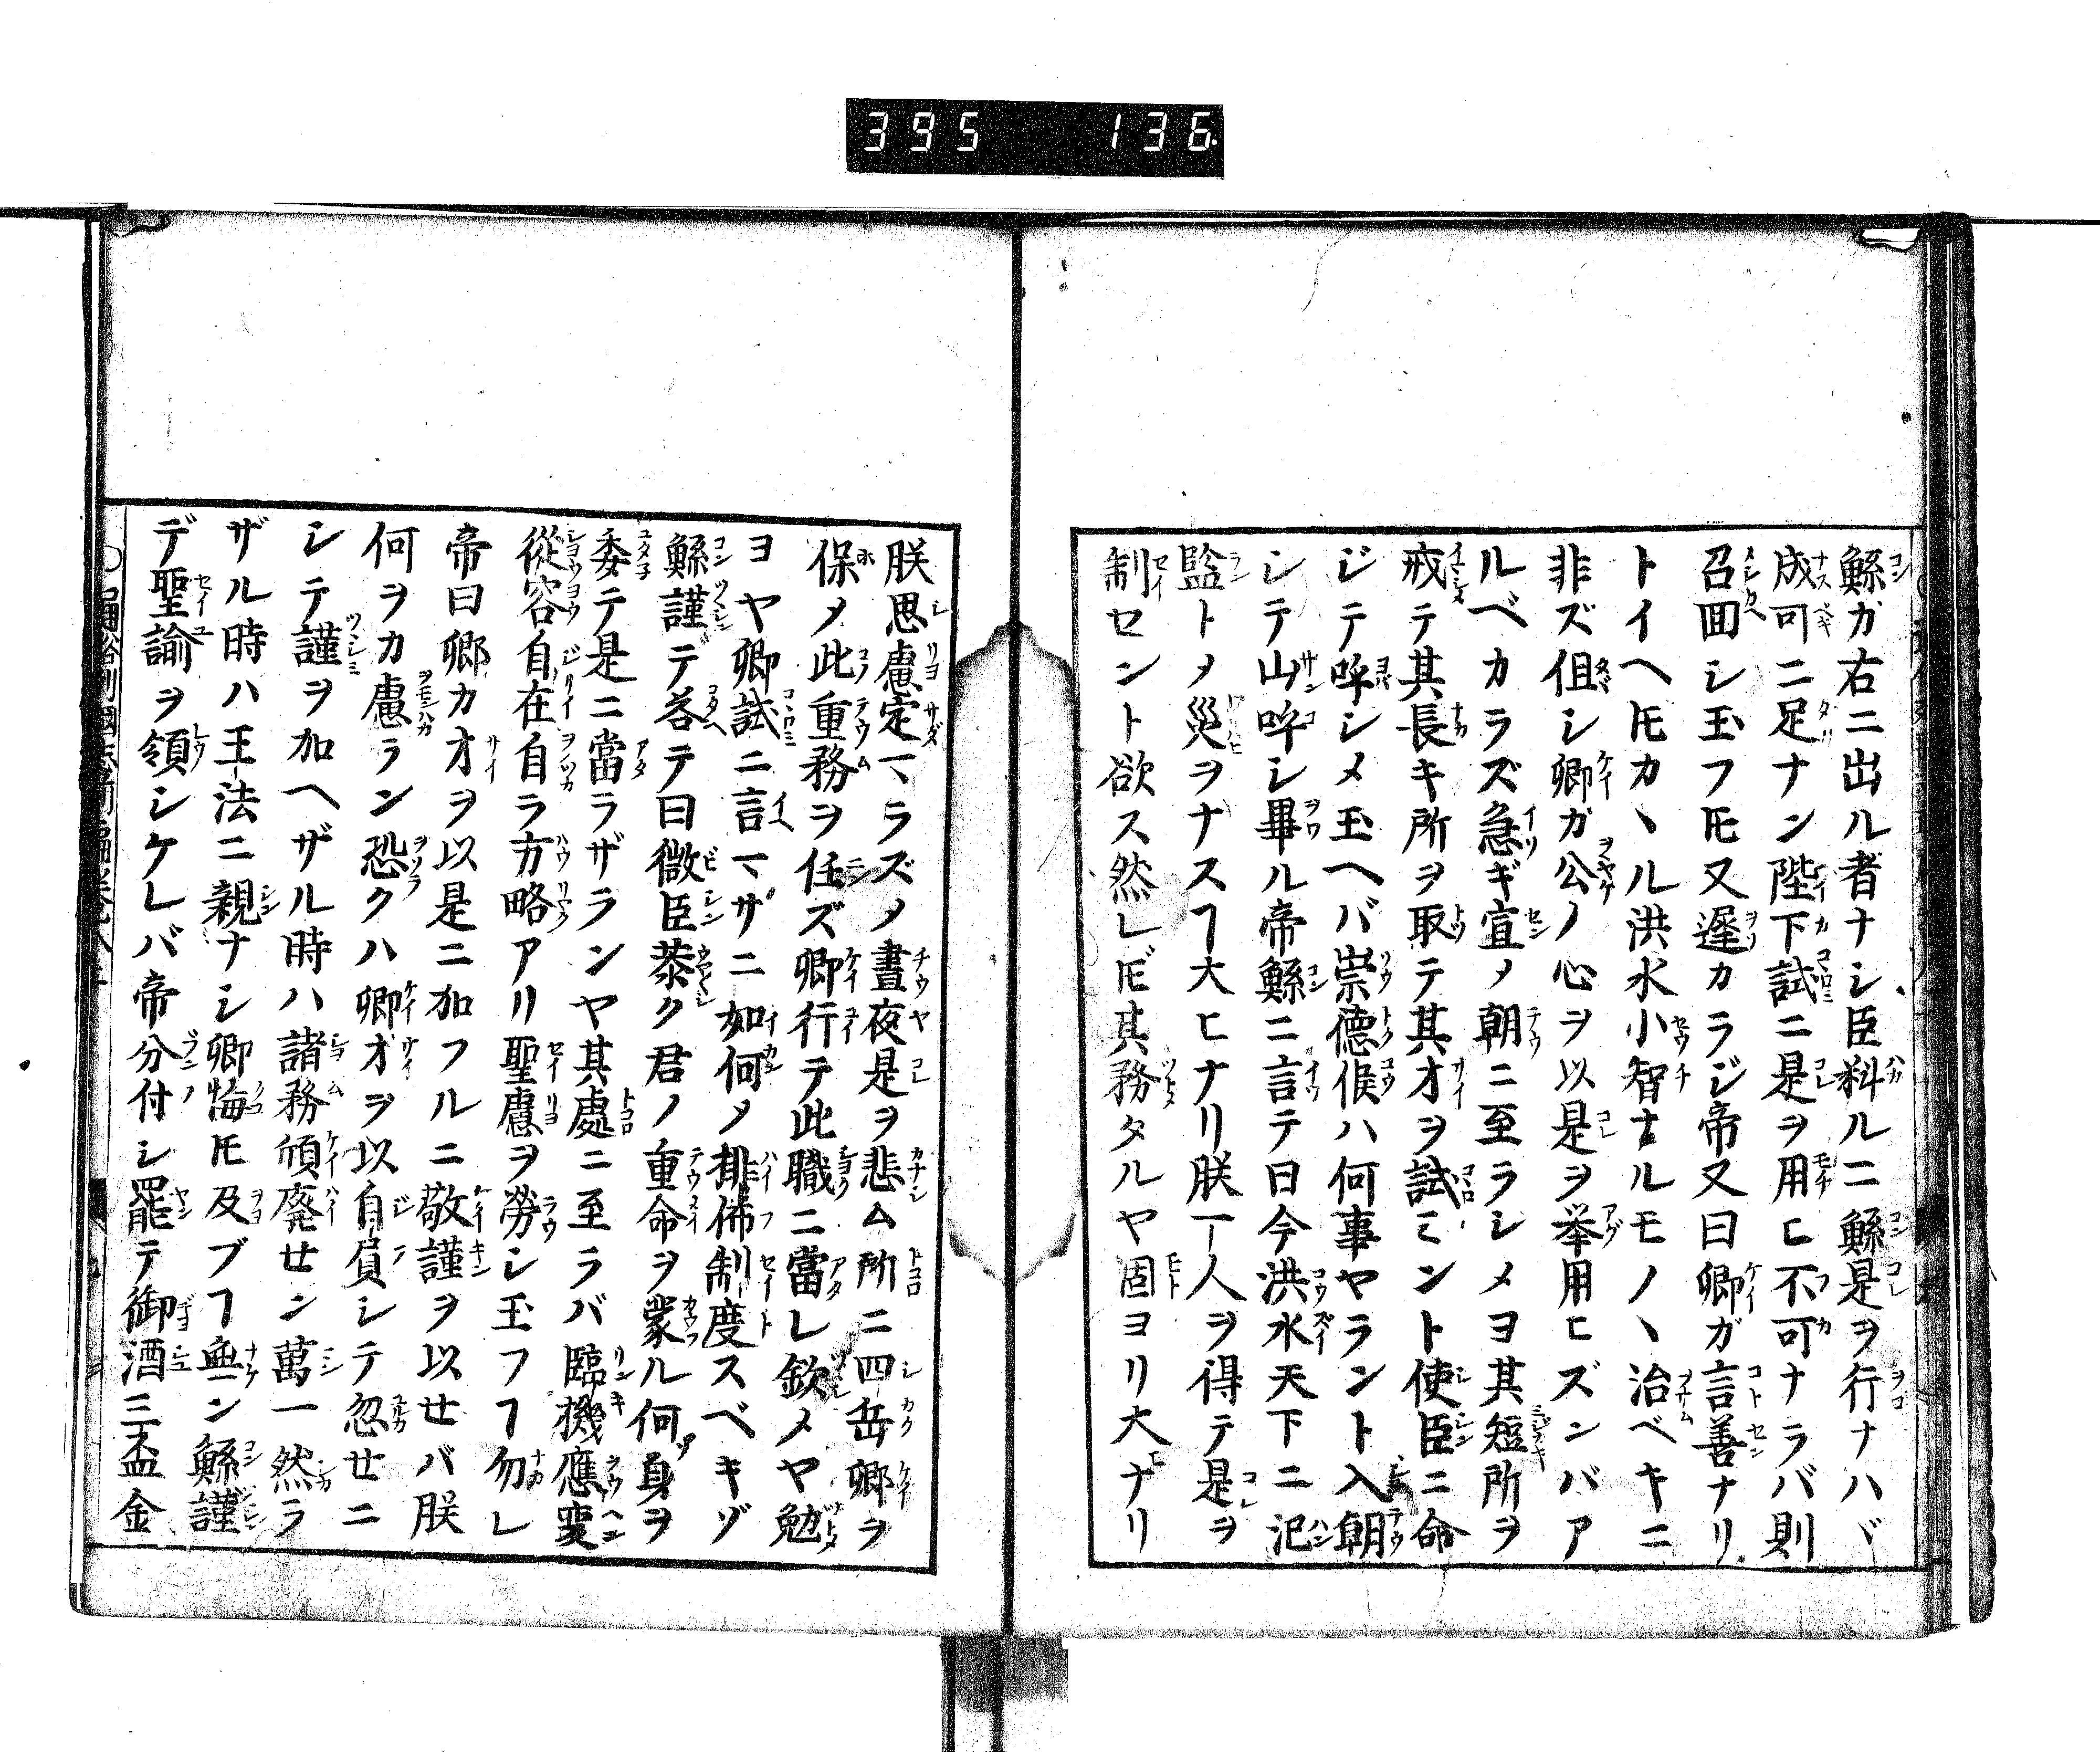 395 136
鯀ガ右ニ出ル者ナシ臣料ルニ鯀是ヲ行ナハヾ
成可ニ足ナン陛下試ニ是ヲ用ヒ不可ナラバ則
召囬シ玉フ𪜈又遲カラジ帝又曰卿ガ言善ナリ
トイヘ𪜈カヽル洪水小智ナルモノヽ治ベキニ
非ズ伹シ卿ガ公ノ心ヲ以是ヲ举用ヒズンバア
ルベカラズ急ギ宣メ朝ニ至ラシメヨ其短所ヲ
戒テ其長キ所ヲ取テ其才ヲ試ミント使臣ニ命
ジテ呼シメ玉ヘバ崇德候ハ何事ヤラント入朝
シテ山呼シ畢ル帝鯀ニ言テ曰今洪水天下ニ氾
監トメ災ヲナスヿ大ヒナリ朕一人ヲ得テ是ヲ
制セント欲ス然レ𪜈其務タルヤ固ヨリ大ナリ
朕思慮定マラズメ晝夜是ヲ悲ム所ニ四岳卿ヲ
保メ此重務ヲ任ズ卿行テ此職ニ當レ欽メヤ勉
ヨヤ卿試ニ言マサニ如何メ排佛制度スベキゾ
鯀謹デ荅テ曰微臣恭ク君ノ重命ヲ蒙ル何身ヲ
委テ是ニ當ラザランヤ其處ニ至ラバ臨機應変
從容自在自ラ方略アリ聖慮ヲ勞シ玉フヿ勿レ
帝曰卿カ才ヲ以是ニ加フルニ敬謹ヲ以セバ朕
何ヲカ慮ラン恐クハ卿才ヲ以自負シテ忽セニ
シテ謹ヲ加ヘザル時ハ諸務頽廃セン萬一然ラ
ザル時ハ王法ニ親ナシ卿悔𪜈及ブヿ無ン鯀謹
デ聖諭ヲ領シケレバ帝分付シ罷テ御酒三盃金